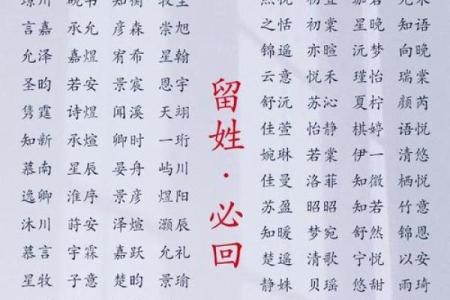 言嘉 承允 彦森 崇旭
允泽 嘉煜 宥希 星翰
圣昀 若安 景宸 恩宇
隽霆 诗煜 闻溪 天翊
知新 承煊 卿时 一珩
慕南 星辰 晏舟 屿川
逸卿 淮序 景彦 煜阳
沐川 莳安 泽煊 灏辰
慕言 宇霖 嘉跃 允礼
星牧 子意 楚昀 景瑜
留姓·必回
之恬 初棠 星晚 知语
锦遥 亦暄 沅梦 向晚
云意 悦禾 瑾怡 瑞棠
舒沅 苏沁 夏柠 颜芮
佳萱 怡静 棋婷 语悦
婉琳 若棠 伊一 清悠
佳曼 洛菲 知微 栖悦
苏盈 昭昭 知若 竹意
知暖 梦宛 舒然 锦恩
楚遥 清歌 宁悦 以安
姝锦 贝瑶 悠甜 雨琦